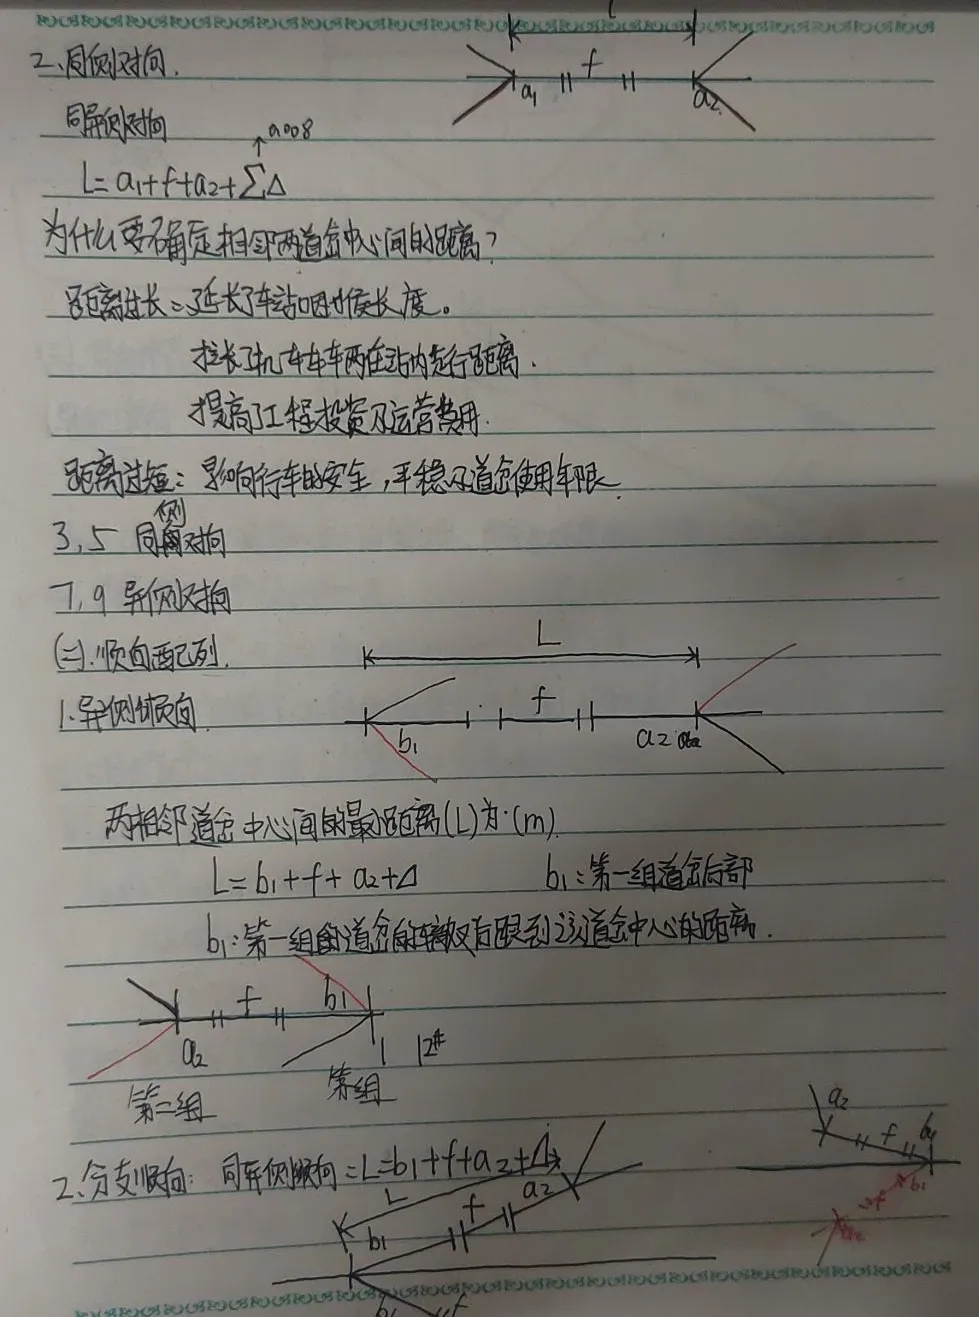 L
2、同侧对向.
a₁ f a₂
同异侧对向
0.008
L=a₁+f+a₂+∑Δ
为什么要确定相邻两道岔中心间的距离?
距离过长:延长了车站咽喉长度。
拉长了机车车辆在站内走行距离.
提高了工程投资及运营费用.
距离过短:影响行车的安全,平稳及道岔使用年限.
侧
3,5 同 对向
7,9 异侧对向
(二).顺向配列.
L
1.异侧顺向
b₁ f a₂
两相邻道岔中心间的最小距离(L)为:(m).
L=b₁+f+a₂+Δ b₁:第一组道岔后部
b₁:第一组 道岔的辙叉后跟到该道岔中心的距离.
a₂ f b₁
12#
第二组 第组
a₂ f b₁
2、分支顺向: 同异侧顺向=L=b₁+f+a₂+Δ
f b₁
L b₁ f a₂
b₁ f